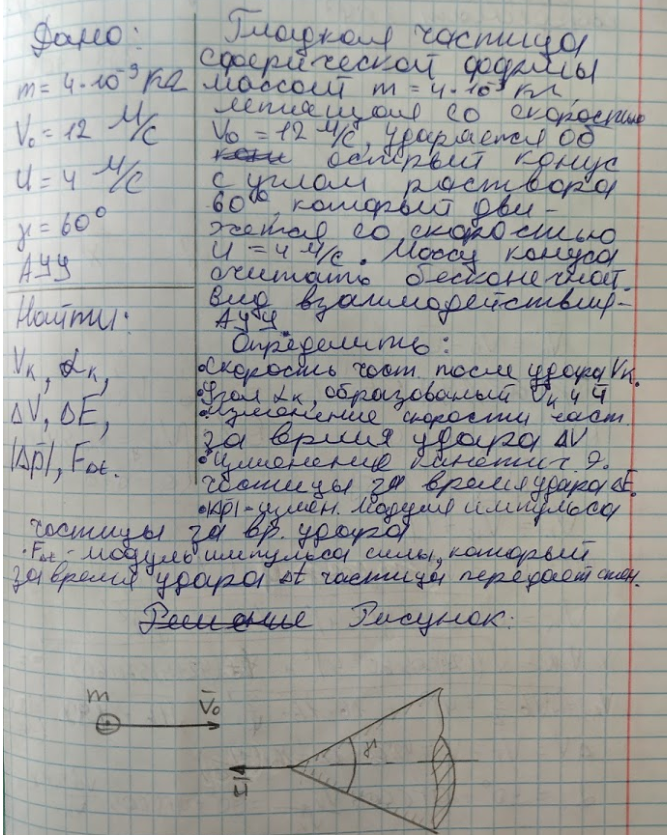 Дано:
m = 4·10⁻³ кг
V₀ = 12 м/с
U = 4 м/с
γ = 60°
АУУ
Найти:
Vк, αк,
ΔV, ΔE,
|Δp̄|, FΔt.
Гладкая частица
сферической формы
массой m = 4·10⁻³ кг
летящая со скоростью
V₀ = 12 м/с, ударяется об
острый конус
с углом раствора
60°, который дви-
жется со скоростью
U = 4 м/с. Массу конуса
считать бесконечной.
Вид взаимодействия-
АУУ.
Определить:
•Скорость част. после удара Vк.
•Угол αк, образованый V̄к и Ū
•Изменение скорости част.
за время удара ΔV
•Изменение кинетич. э.
частицы за время удара ΔE.
•|Δp̄|-измен. модуля импульса
частицы за вр. удара
•FΔt - модуль импульса силы, который
за время удара Δt частица передает стен.
Решение Рисунок:
m V̄₀
γ
Ū